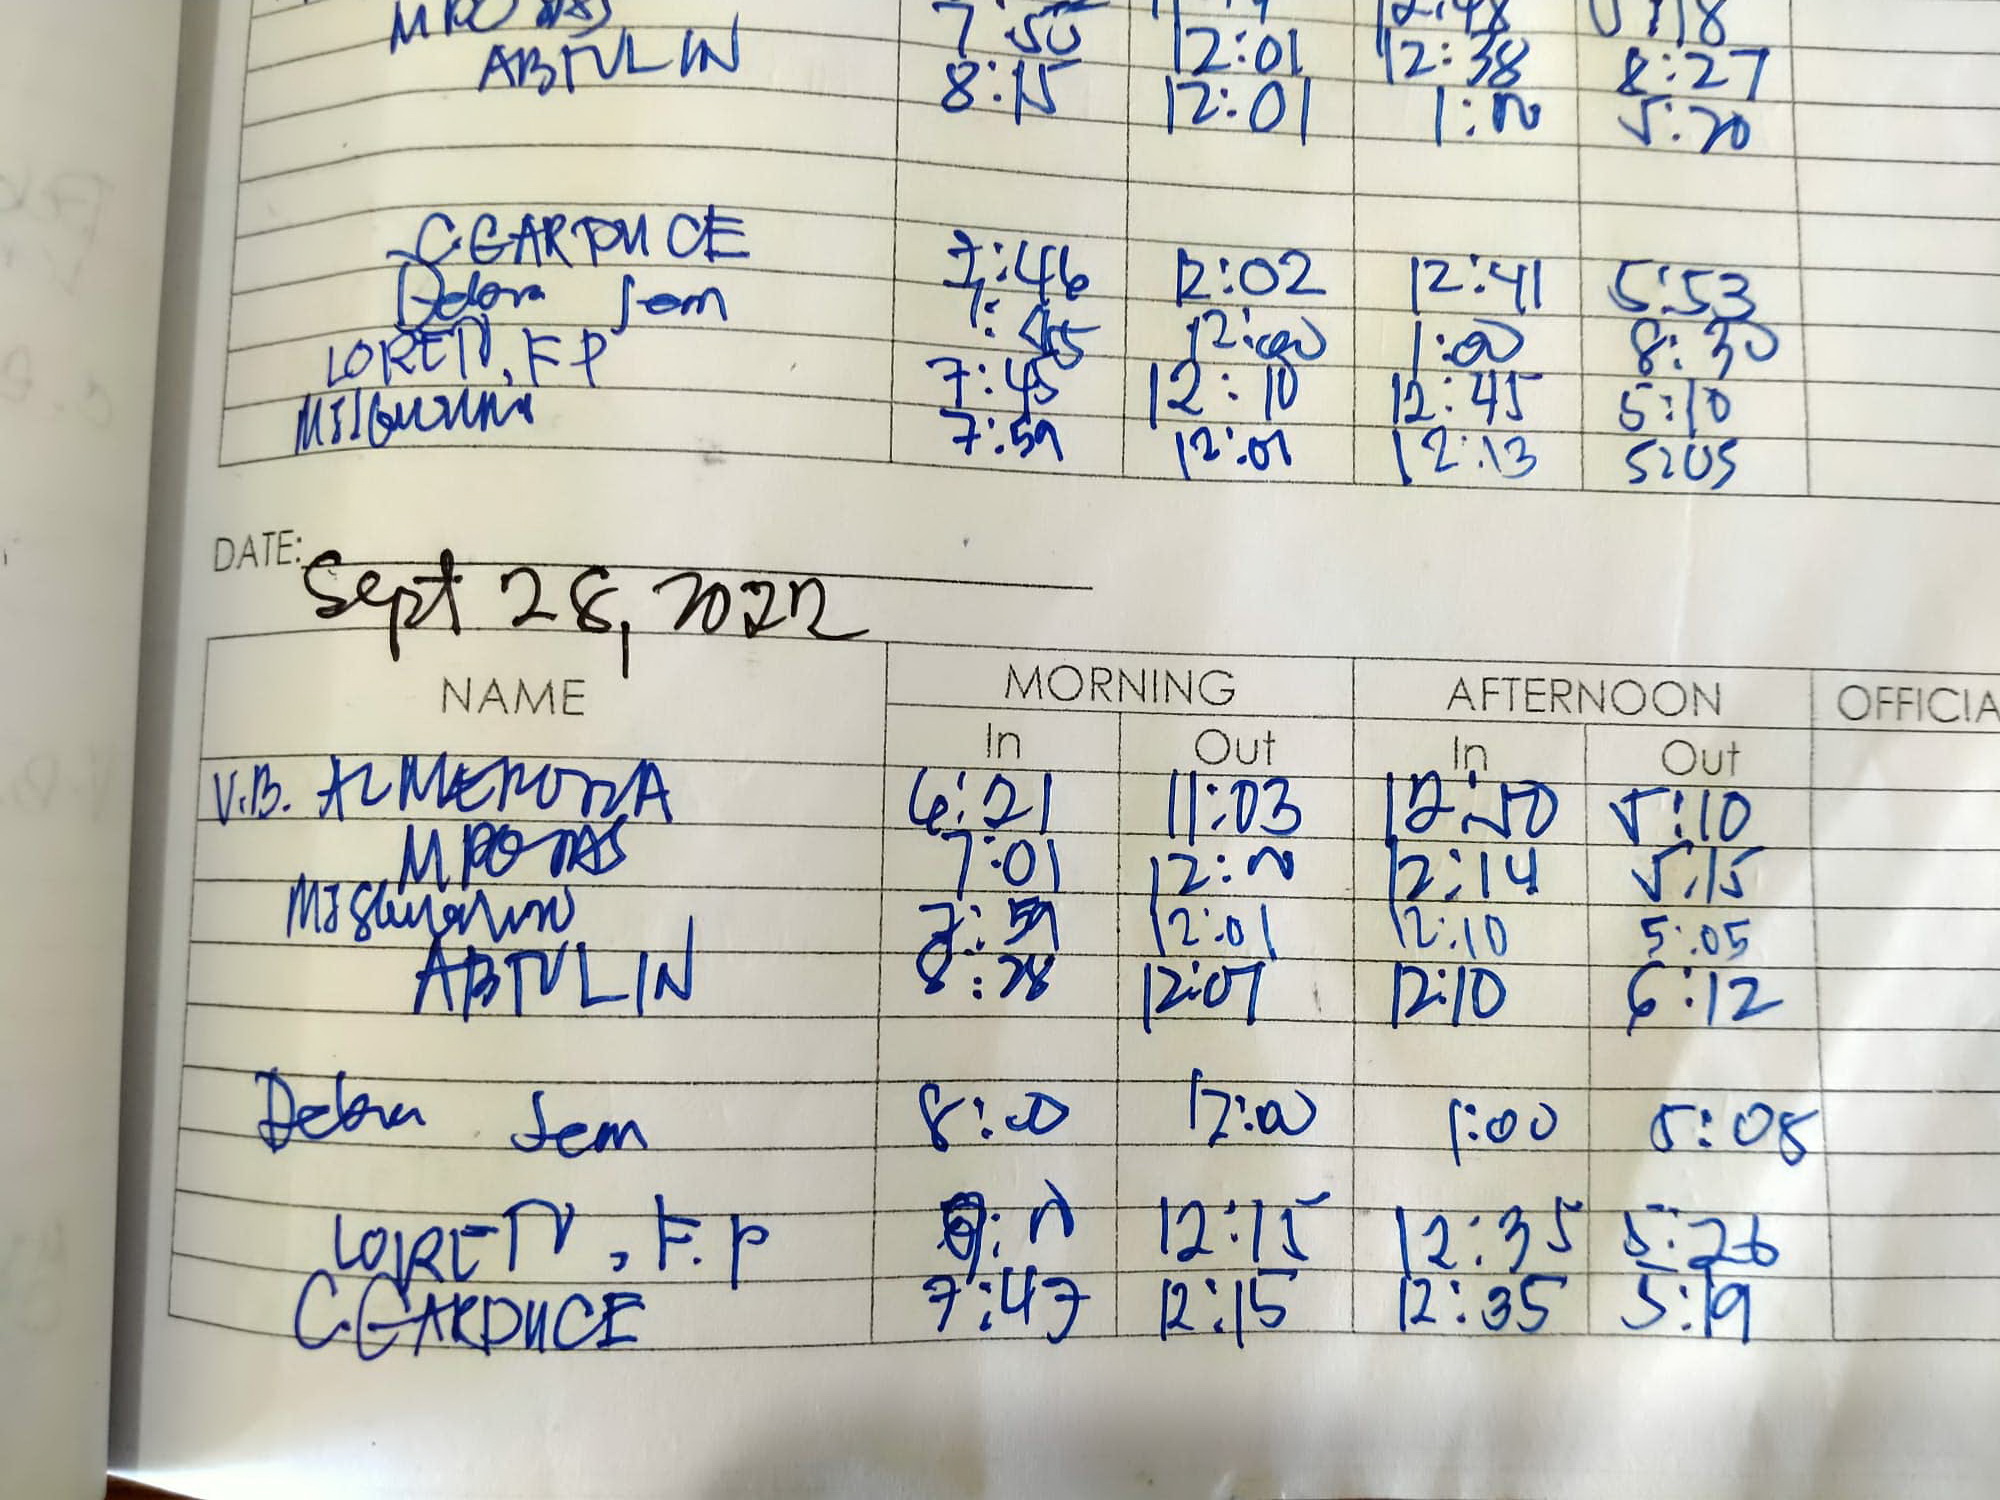 7:50 12:01 12:38 8:27
ABTULIN 8:15 12:01 1:00 5:20
C GARDUCE 7:46 12:02 12:41 5:53
Debra Jem 7:45 12:00 1:00 8:30
LORETO, F.P 7:45 12:10 12:45 5:10
7:59 12:01 12:13 5:05
DATE: Sept 28, 2022
NAME MORNING AFTERNOON OFFICIA
In Out In Out
V.B. ALMEROZZA 6:21 11:03 12:50 5:10
7:01 12:00 12:14 5:15
7:59 12:01 12:10 5:05
ABTULIN 8:28 12:07 12:10 6:12
Debra Jem 8:00 12:00 1:00 5:08
LORETO, F.P 12:15 12:35 5:26
C.GARDUCE 7:47 12:15 12:35 5:19